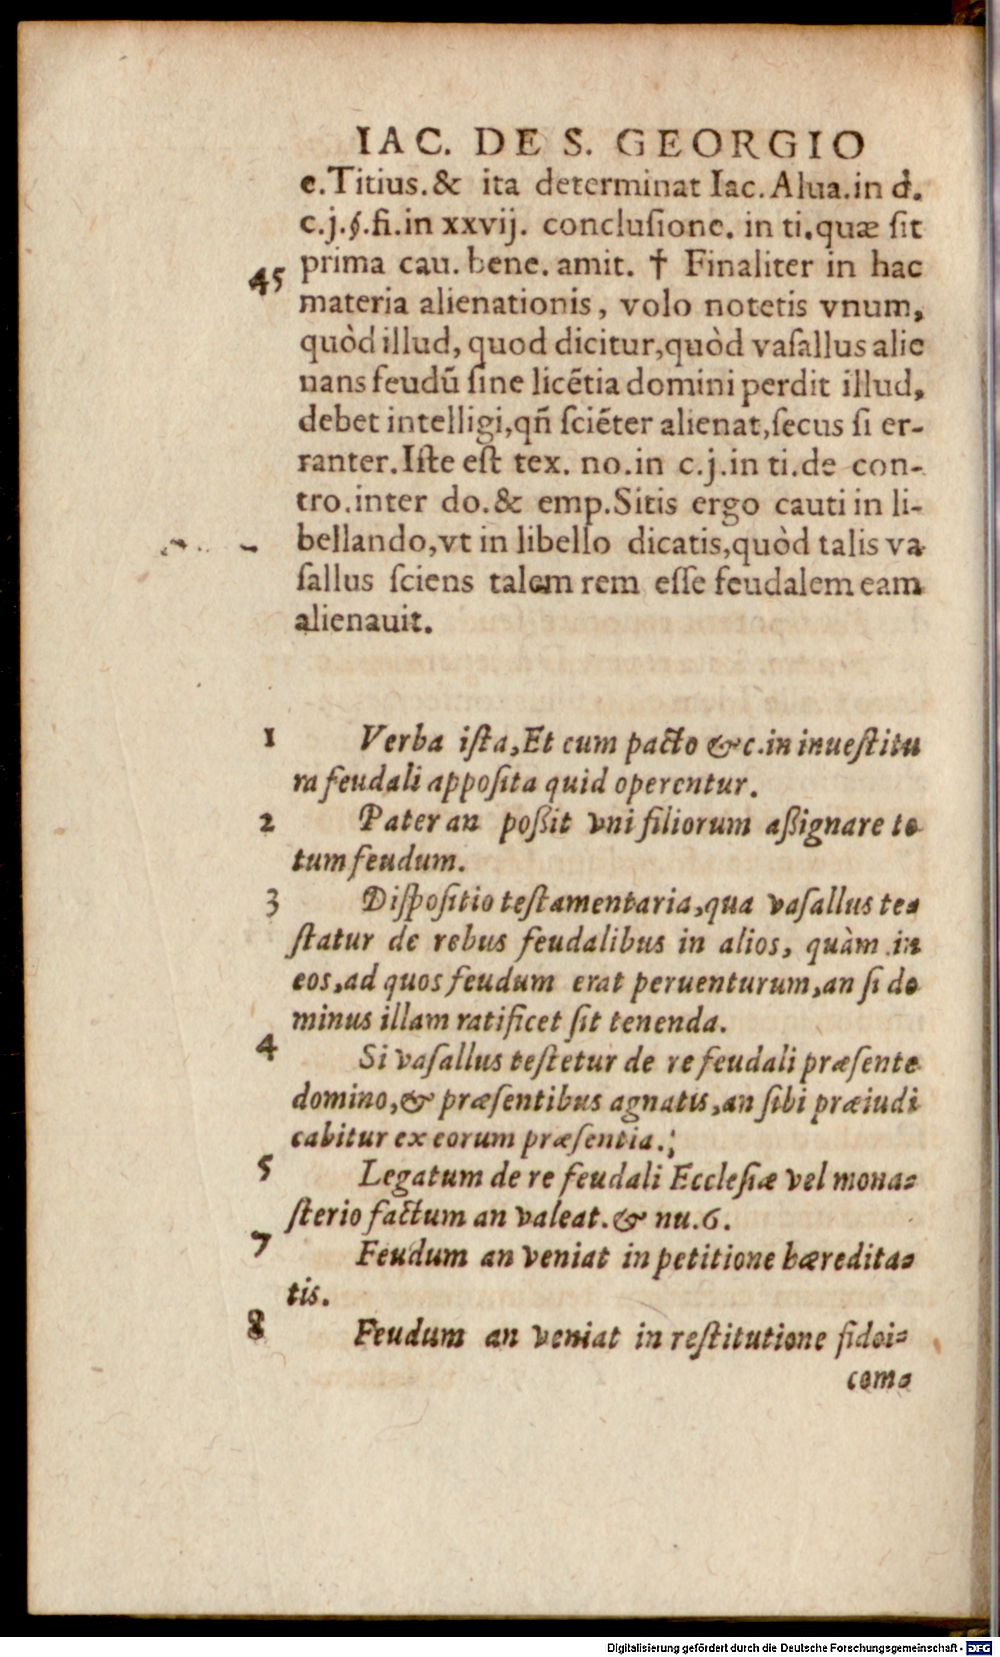 IAC. DE S. GEORGIO
e.Titius.& ita determinat Iac.Alua.in d.
c.j.§.fi.in xxvij. conclusione. in ti.quæ sit
45 prima cau. bene. amit. † Finaliter in hac
materia alienationis, volo notetis vnum,
quòd illud, quod dicitur,quòd vasallus alie
nans feudū sine licẽtia domini perdit illud,
debet intelligi,qñ sciẽter alienat,secus si er-
ranter.Iste est tex. no.in c.j.in ti.de con-
tro.inter do.& emp.Sitis ergo cauti in li-
bellando,vt in libello dicatis,quòd talis va
sallus sciens talem rem esse feudalem eam
alienauit.
1 Verba ista,Et cum pacto &c.in inuestitu
ra feudali apposita quid operentur.
2 Pater an possit vni filiorum assignare to
tum feudum.
3 Dispositio testamentaria,qua vasallus te-
statur de rebus feudalibus in alios, quàm in
eos,ad quos feudum erat peruenturum,an si do
minus illam ratificet sit tenenda.
4 Si vasallus testetur de re feudali præsente
domino,& præsentibus agnatis,an sibi præiudi
cabitur ex eorum præsentia.
5 Legatum de re feudali Ecclesiæ vel mona-
sterio factum an valeat.& nu.6.
7 Feudum an veniat in petitione hæredita-
tis.
8 Feudum an veniat in restitutione fidei-
com-
Digitalisierung gefördert durch die Deutsche Forschungsgemeinschaft - DFG